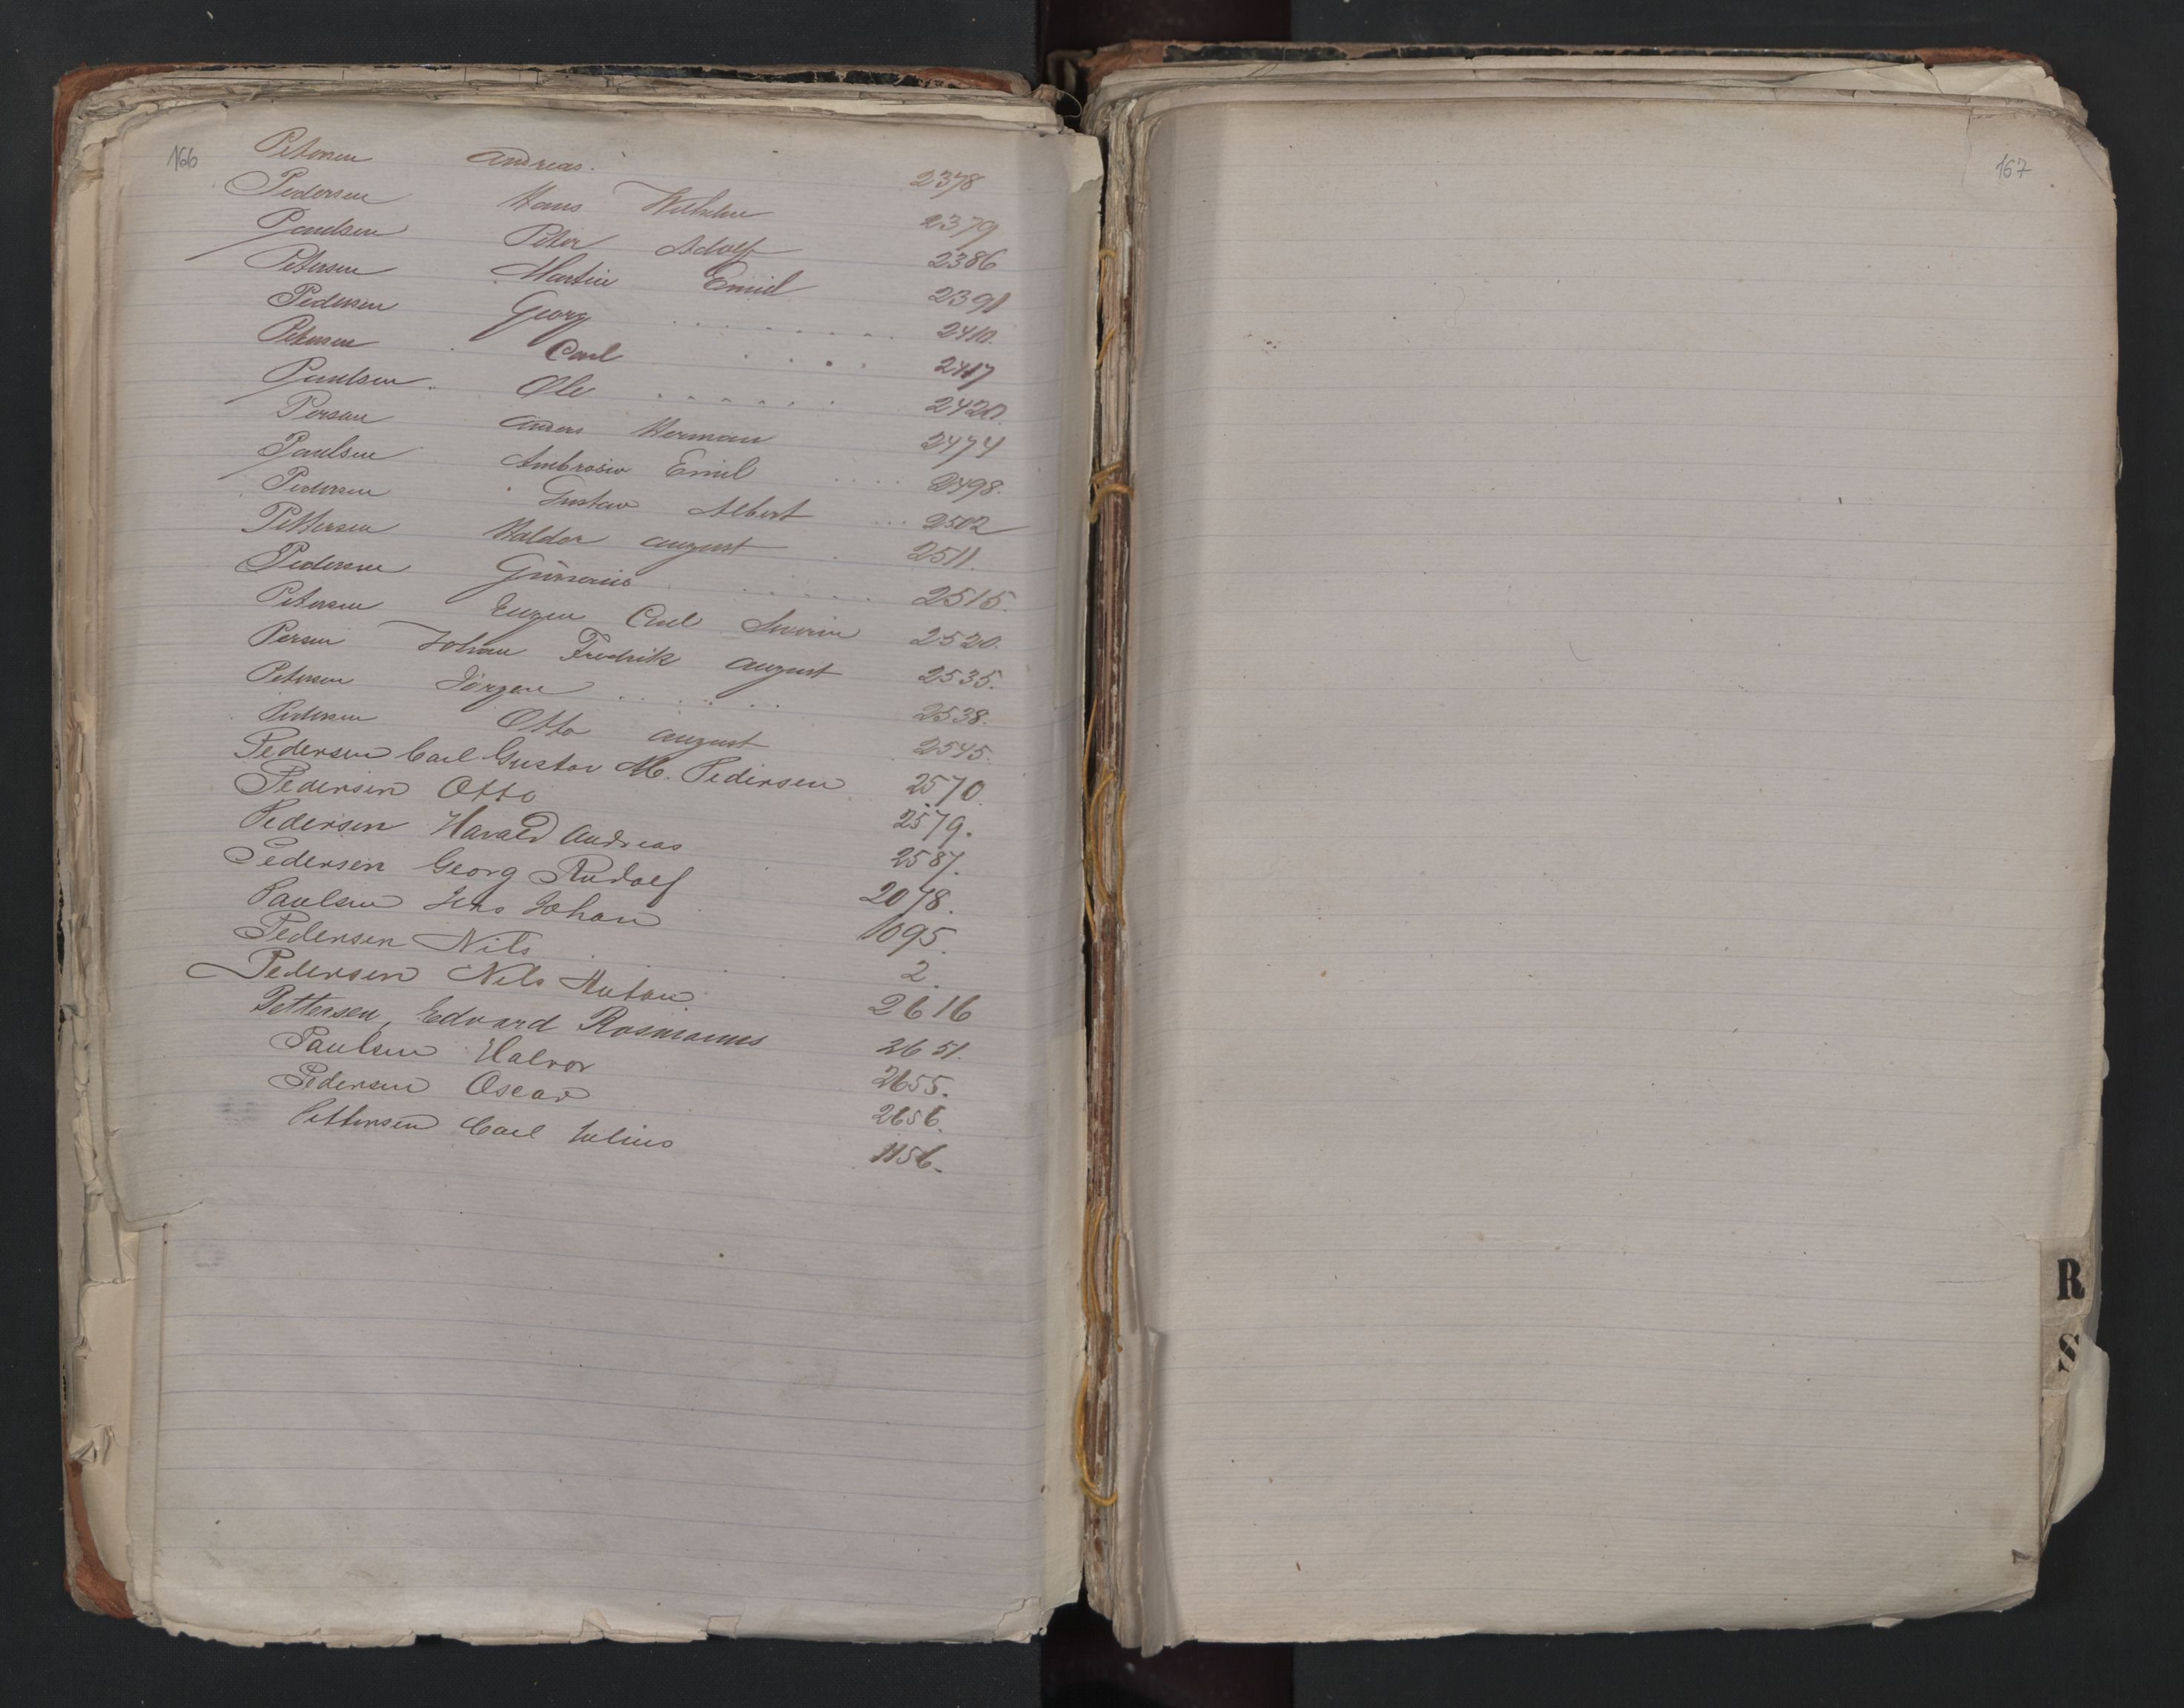 166
Petersen Andreas. 2378
Pedersen Hans Wilhelm 2379
Paulsen Peter Adolf 2386
Petersen Martin Emiel 2391
Pedersen Georg ........ 2410.
Petersen Carl .... 2417
Paulsen. Ole ....... 2420.
Persan Anders Herman 2474
Paulsen Ambrosio Emil .... 2498.
Pedersen Gustav Albert ... 2502
Pettersen Halder August . 2511.
Pedersen ...... 2515.
Petersen Eugen Carl Severin 2520.
Persen Johan Fredrik August 2535.
Petersen Jörgen ..... 2538.
Pedersen Otto August 2545.
Pedersen Carl Gustav M. Pedersen 2570.
Pedersen Otto 2579.
Pedersen Harald Andreas 2587.
Pedersen Georg Rudolf 2078.
Paulsen Jens Johan 1095.
Pedersen Nils 2.
Pedersen Nils Anton 2616
Pettersen, Edvard 2651.
Paulsen Halvor 2655.
Pedersen Oscar 2656.
Pettersen Carl Julius 1156.
167
R
S